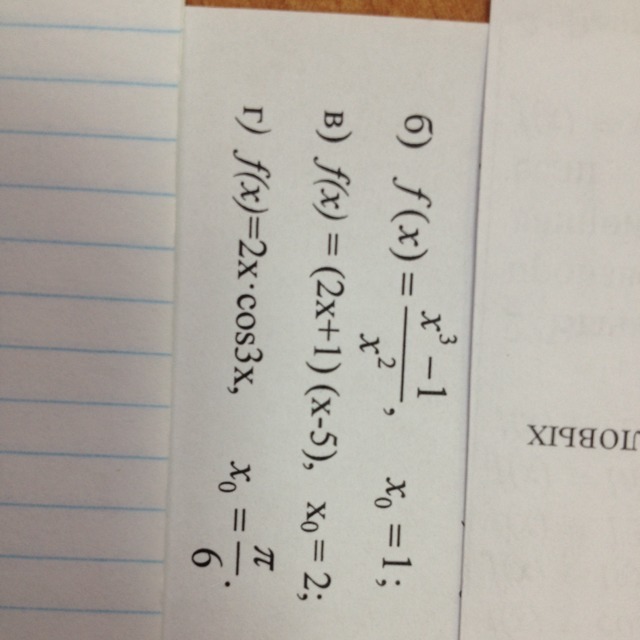 б) f(x) = (x³ −1)/x², x₀ =1;
в) f(x) = (2x+1) (x-5), x₀ = 2;
г) f(x)=2x·cos3x, x₀ = π/6.
ЛОВЫХ